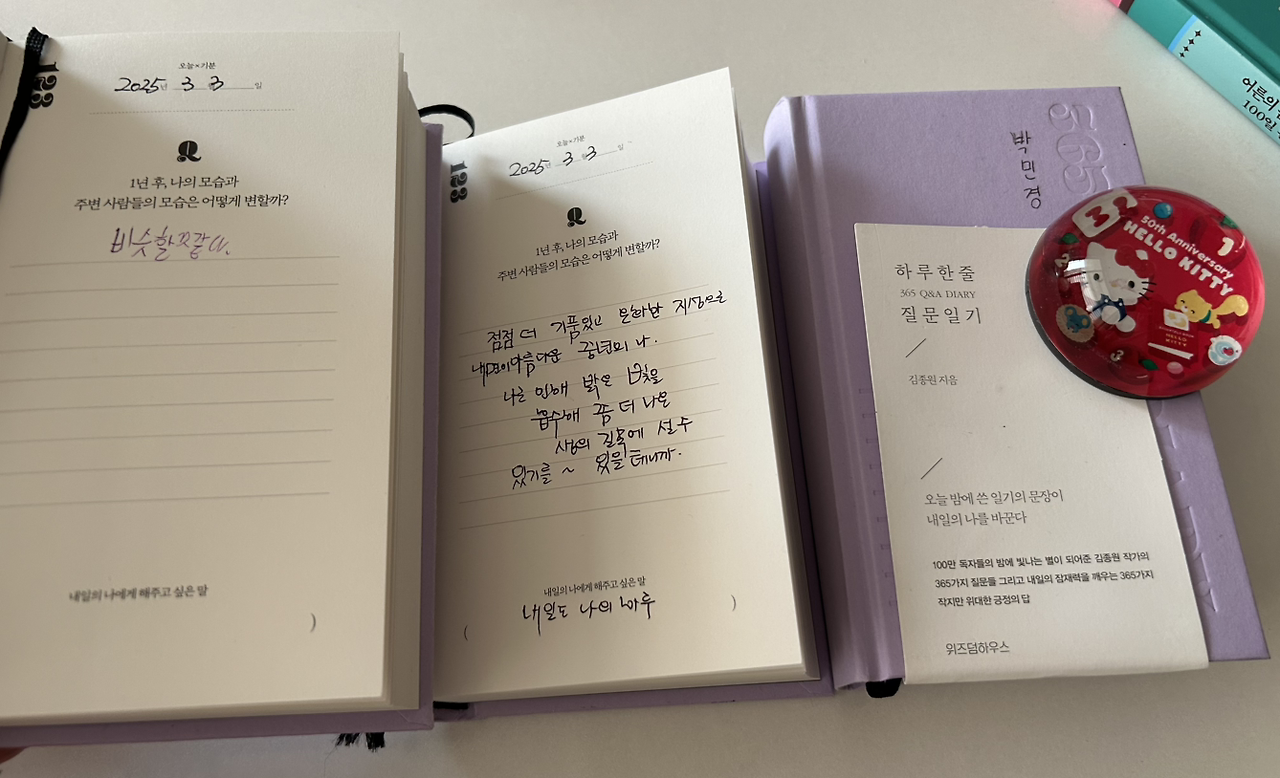 123
오늘×기분
2025년 3월 3일
Q
1년 후, 나의 모습과
주변 사람들의 모습은 어떻게 변할까?
비슷할꺼같다.
내일의 나에게 해주고 싶은 말
)
123
오늘×기분
2025년 3 3
Q
1년 후, 나의 모습과
주변 사람들의 모습은 어떻게 변할까?
점점 더 기품있고 온화한 지성으로
내면이 아름다운 중년의 나.
나로 인해 밝은 빛을
흡수해 좀 더 나은
삶의 길목에 설 수
있기를 ~ 있을 테니까.
내일의 나에게 해주고 싶은 말
( 내일도 나의 하루 )
365
박민경
하루 한 줄
365 Q&A DIARY
질문 일기
김종원 지음
오늘 밤에 쓴 일기의 문장이
내일의 나를 바꾼다
100만 독자들의 밤에 빛나는 별이 되어준 김종원 작가의
365가지 질문들 그리고 내일의 잠재력을 깨우는 365가지
작지만 위대한 긍정의 답
위즈덤하우스
50th Anniversary
HELLO KITTY
1
2
3
HELLO
KITTY
어른의
100일